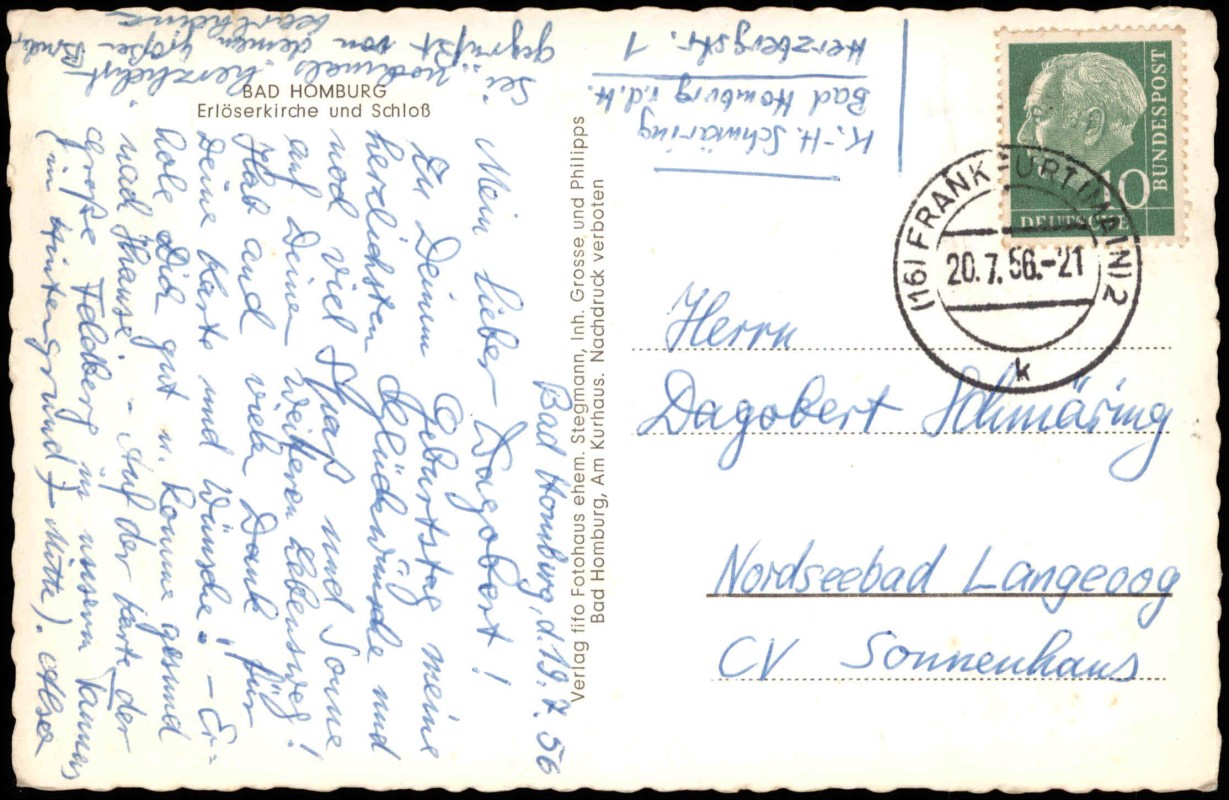 BAD HOMBURG
Erlöserkirche und Schloß
Bad Homburg, d. 19.7.56
Mein lieber Dagobert!
Zu Deinem Geburtstag meine
herzlichsten Glückwünsche und
noch viel Spaß und Sonne
auf Deinem weiteren Lebensweg!
Hab auch vielen Dank für
Deine Karte und Wünsche! – Er-
hole Dich gut u. komme gesund
nach Hause. – Auf der Karte der
Große Feldberg in unserm Taunus
(im Hintergrund – Mitte). Also
sei nochmals herzlichst
gegrüßt von deinem großen Brud.
Karlheinz
Verlag fifo Fotohaus ehem. Stegmann, Inh. Grosse und Philipps
Bad Homburg, Am Kurhaus. Nachdruck verboten
K.-H. Schmäring
Bad Homburg v.d.H.
Herzbergstr. 1
DEUTSCHE
BUNDESPOST
10
(16) FRANKFURT (MAIN) 2
20.7.56.-21
k
Herrn
Dagobert Schmäring
Nordseebad Langeoog
CV Sonnenhaus